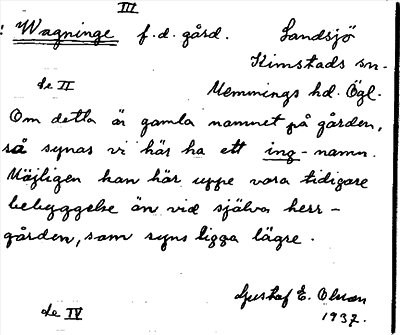 III
: Wagninge f.d. gård. Landsjö
Kimstads sn.
de II Memmings hd. Ögl.
Om detta är gamla namnet på gården,
så synas vi här ha ett ing-namn.
Möjligen kan här uppe vara tidigare
bebyggelse än vid själva herr-
gården, som syns ligga lägre.
Gustaf E. Olsson
1937.
de IV